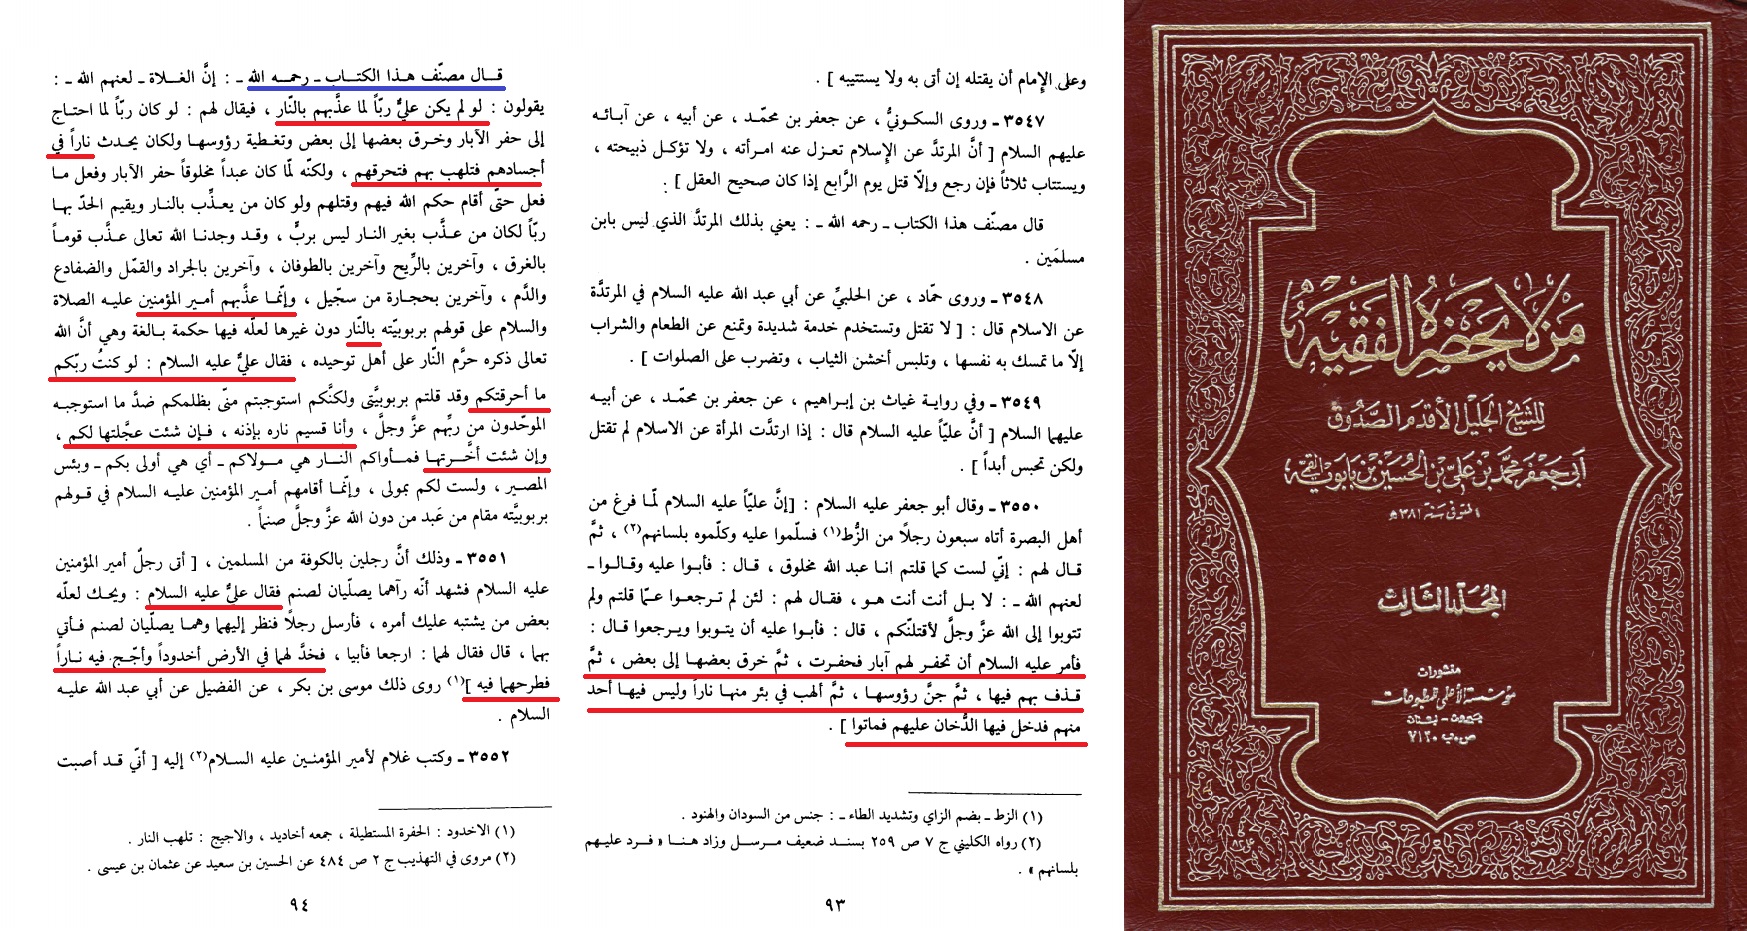 وعلى الإمام أن يقتله إن أتى به ولا يستتيبه ] .
٣٥٤٧ ـ وروى السكونيُّ ، عن جعفر بن محمّد ، عن أبيه ، عن آبائه
عليهم السلام [ أنَّ المرتدَّ عن الإسلام تعزل عنه امرأته ، ولا تؤكل ذبيحته ،
ويستتاب ثلاثاً فإن رجع وإلّا قتل يوم الرَّابع إذا كان صحيح العقل ] :
قال مصنّف هذا الكتاب ـ رحمه الله ـ : يعني بذلك المرتدَّ الذي ليس بابن
مسلمَين .
٣٥٤٨ ـ وروى حمّاد ، عن الحلبيِّ عن أبي عبد الله عليه السلام في المرتدَّة
عن الاسلام قال : [ لا تقتل وتستخدم خدمة شديدة وتمنع عن الطعام والشراب
إلّا ما تمسك به نفسها ، وتلبس أخشن الثياب ، وتضرب على الصلوات ] .
٣٥٤٩ ـ وفي رواية غياث بن إبراهيم ، عن جعفر بن محمّد ، عن أبيه
عليهما السلام [ أنَّ عليّاً عليه السلام قال : إذا ارتدَّت المرأة عن الاسلام لم تقتل
ولكن تحبس أبداً ] .
٣٥٥٠ ـ وقال أبو جعفر عليه السلام : [إنَّ عليّاً عليه السلام لمّا فرغ من
أهل البصرة أتاه سبعون رجلاً من الزُّط(١) فسلّموا عليه وكلّموه بلسانهم(٢) ، ثمَّ
قال لهم : إنّي لست كما قلتم انا عبد الله مخلوق ، قال : فأبوا عليه وقالوا ـ
لعنهم الله ـ : لا بل أنت أنت هو ، فقال لهم : لئن لم ترجعوا عمّا قلتم ولم
تتوبوا إلى الله عزَّ وجلَّ لأقتلنّكم ، قال : فأبوا عليه أن يتوبوا ويرجعوا قال :
فأمر عليه السلام أن تحفر لهم آبار فحفرت ، ثمَّ خرق بعضها إلى بعض ، ثمَّ
قذف بهم فيها ، ثمَّ جنَّ رؤوسها ، ثمَّ ألهب في بئر منها ناراً وليس فيها أحد
منهم فدخل فيها الدُّخان عليهم فماتوا ] .
(١) الزط ـ بضم الزاي وتشديد الطاء ـ : جنس من السودان والهنود .
(٢) رواه الكليني ج ٧ ص ٢٥٩ بسند ضعيف مرسل وزاد هنا « فرد عليهم
بلسانهم » .
٩٣
قال مصنّف هذا الكتاب ـ رحمه الله ـ : إنَّ الغلاة ـ لعنهم الله ـ :
يقولون : لو لم يكن عليٌّ ربّاً لما عذَّبهم بالنّار ، فيقال لهم : لو كان ربّاً لما احتاج
إلى حفر الآبار وخرق بعضها إلى بعض وتغطية رؤوسها ولكان يحدث ناراً في
أجسادهم فتلهب بهم فتحرقهم ، ولكنّه لمّا كان عبداً مخلوقاً حفر الآبار وفعل ما
فعل حتّى أقام حكم الله فيهم وقتلهم ولو كان من يعذِّب بالنار ويقيم الحدّ بها
ربّاً لكان من عذَّب بغير النار ليس بربٍّ ، وقد وجدنا الله تعالى عذَّب قوماً
بالغرق ، وآخرين بالرِّيح وآخرين بالطوفان ، وآخرين بالجراد والقمّل والضفادع
والدَّم ، وآخرين بحجارة من سجّيل ، وإنّما عذَّبهم أمير المؤمنين عليه الصلاة
والسلام على قولهم بربوبيّته بالنّار دون غيرها لعلّه فيها حكمة بالغة وهي أنَّ الله
تعالى ذكره حرَّم النّار على أهل توحيده ، فقال عليٌّ عليه السلام : لو كنتُ ربّكم
ما أحرقتكم وقد قلتم بربوبيَّتى ولكنَّكم استوجبتم منّى بظلمكم ضدَّ ما استوجبه
الموحّدون من ربِّهم عزَّ وجلَّ ، وأنا قسيم ناره بإذنه ، فإن شئت عجَّلتها لكم ،
وإن شئت أخَّرتها فمأواكم النار هي مولاكم ـ أي هي أولى بكم ـ وبئس
المصير ، ولست لكم بمولى ، وإنّما أقامهم أمير المؤمنين عليه السلام في قولهم
بربوبيَّته مقام من عَبد من دون الله عزَّ وجلَّ صنماً .
٣٥٥١ ـ وذلك أنَّ رجلين بالكوفة من المسلمين ، [ أتى رجلٌ أمير المؤمنين
عليه السلام فشهد أنّه رآهما يصلّيان لصنم فقال عليٌّ عليه السلام : ويحك لعلّه
بعض من يشتبه عليك أمره ، فأرسل رجلاً فنظر إليهما وهما يصلّيان لصنم فأتي
بهما ، قال فقال لهما : ارجعا فأبيا ، فخدَّ لهما في الأرض أخدوداً وأجّج فيه ناراً
فطرحهما فيه ](١) روى ذلك موسى بن بكر ، عن الفضيل عن أبي عبد الله عليه
السلام .
٣٥٥٢ ـ وكتب غلام لأمير المؤمنين عليه السلام(٢) إليه [ أنّي قد أصبت
(١) الاخدود : الحفرة المستطيلة ، جمعه أخاديد ، والاجيج : تلهب النار .
(٢) مروى في التهذيب ج ٢ ص ٤٨٤ عن الحسين بن سعيد عن عثمان بن عيسى .
٩٤
من لا يحضره الفقيه
للشيخ الجليل الأقدم الصدوق
أبي جعفر محمد بن علي بن الحسين بن بابويه القمي
المتوفى سنة ٣٨١ هـ
المجلد الثالث
منشورات
مؤسسة الأعلمي للمطبوعات
بيروت - لبنان
ص.ب ٧١٢٠